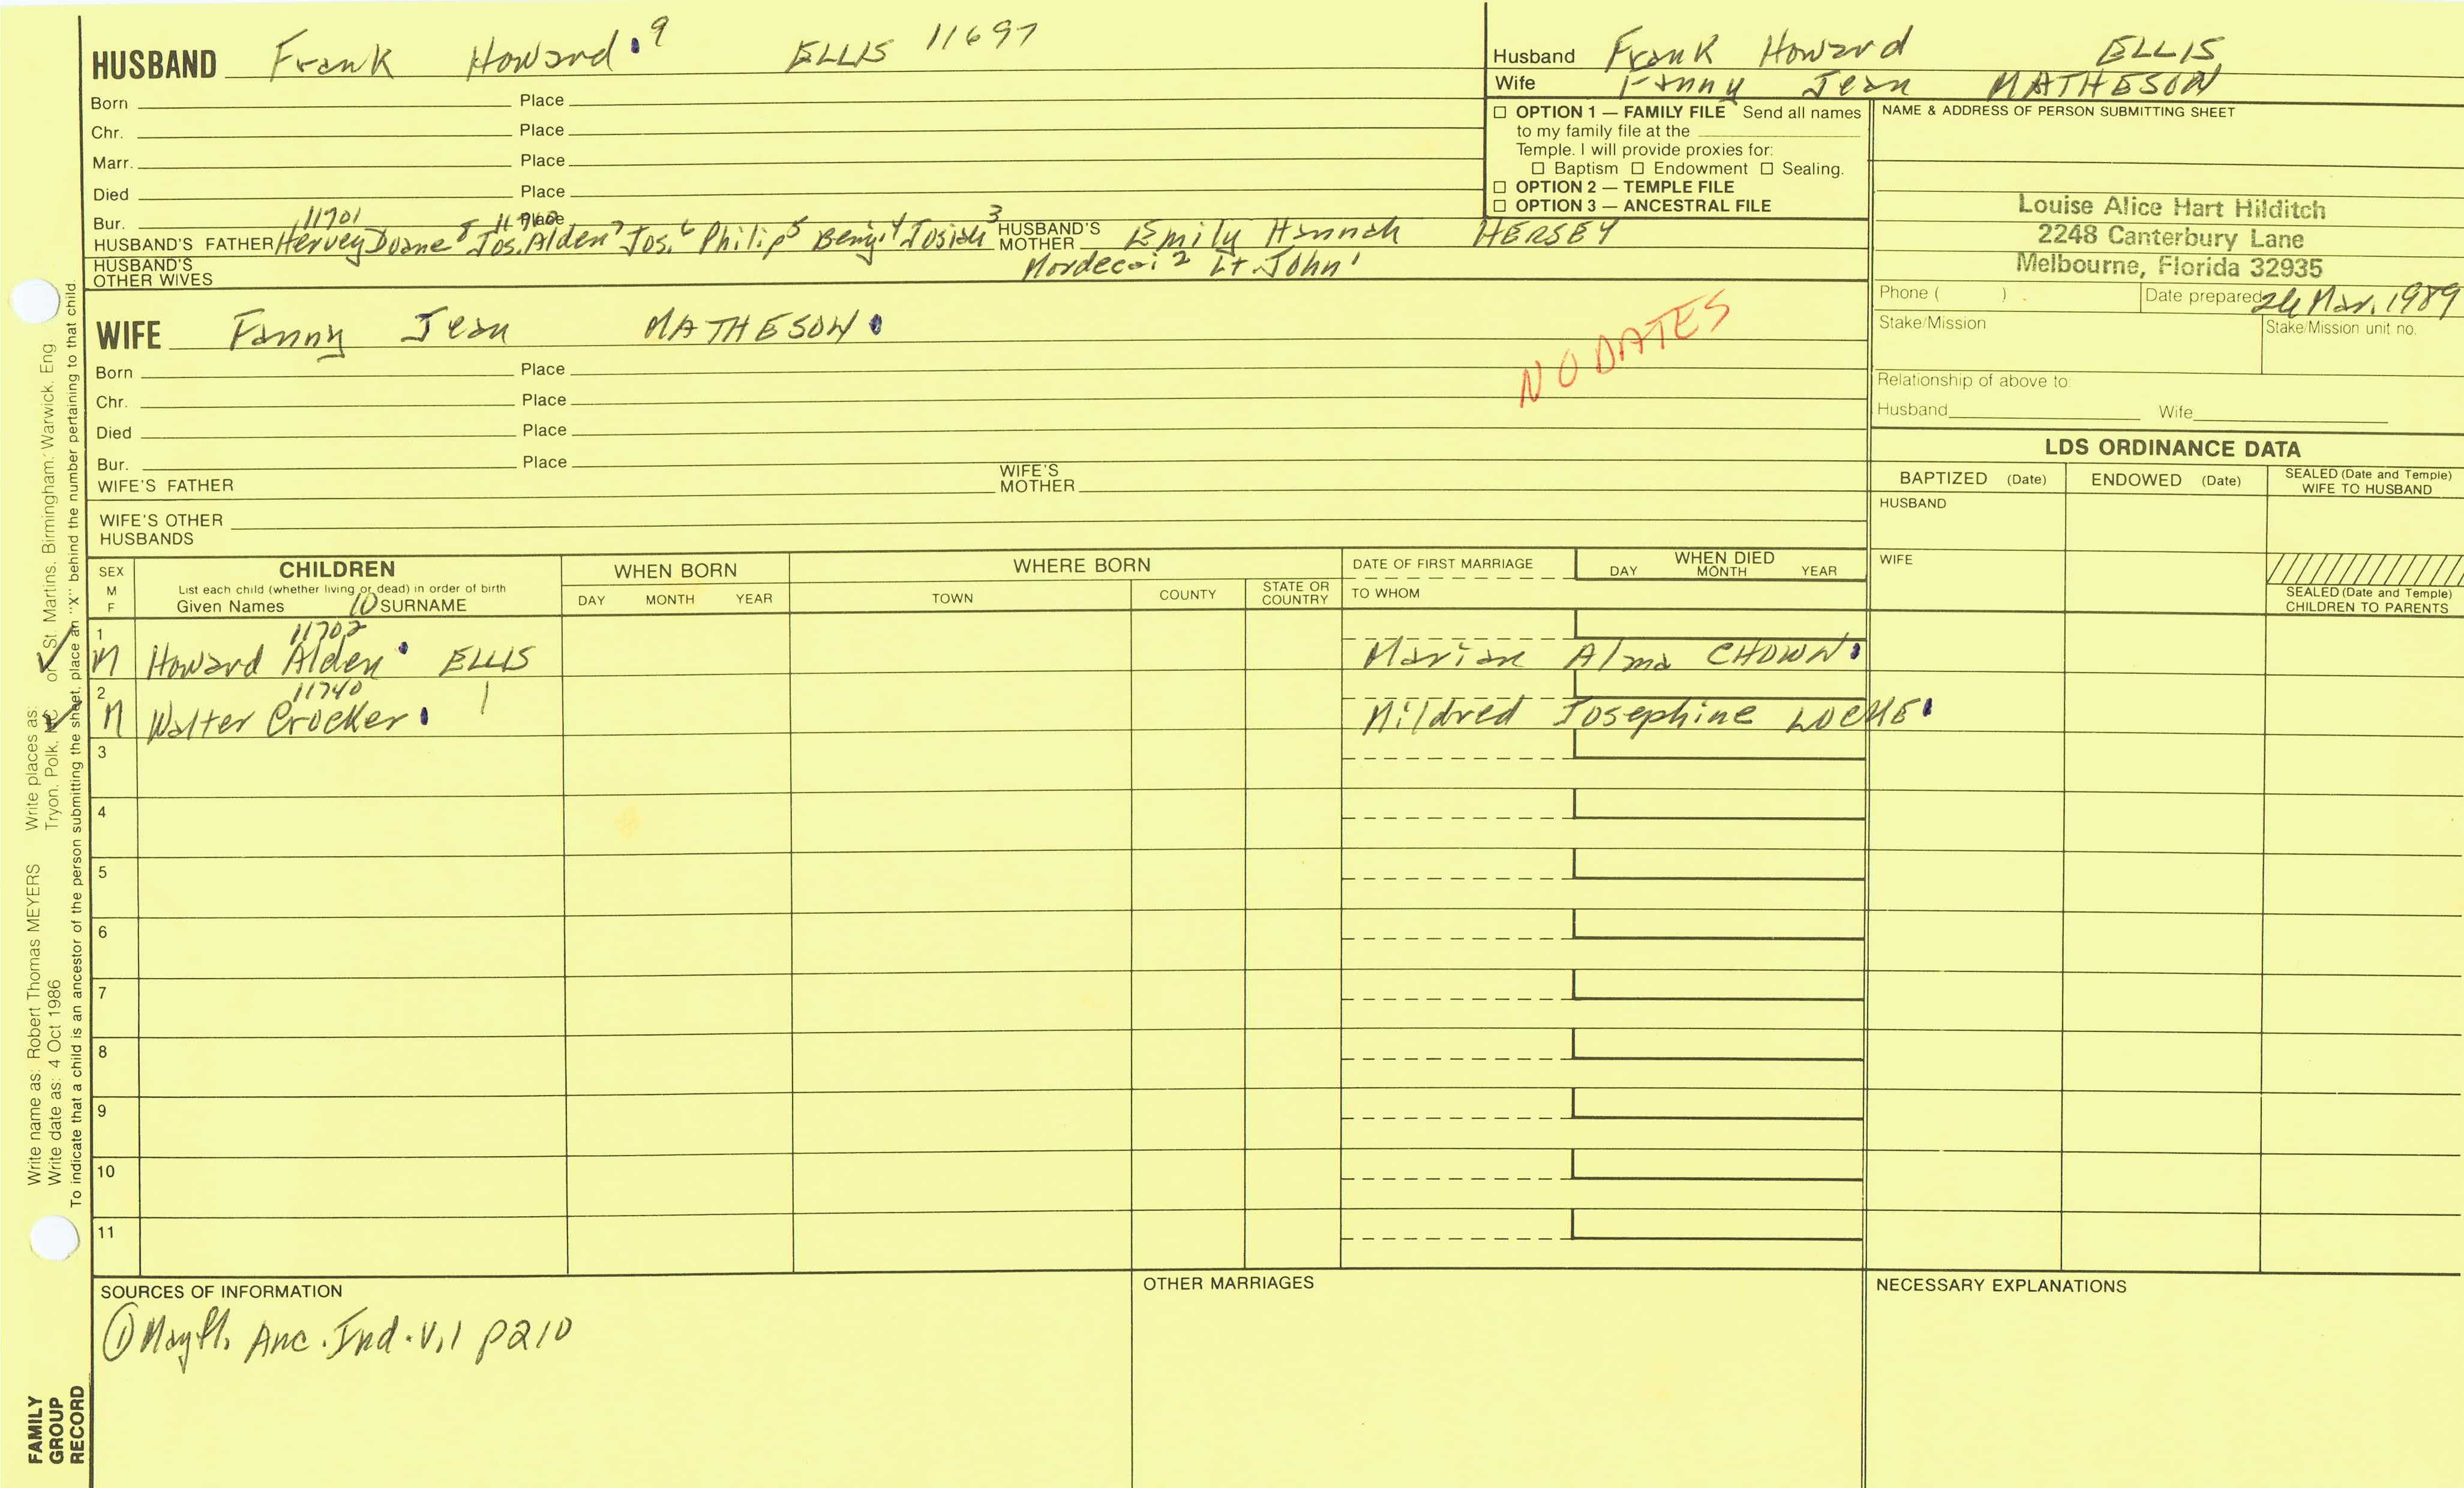 HUSBAND Frank Howard 9 ELLIS 11697
Born Place
Chr. Place
Marr. Place
Died Place
Bur. Place
11701
HUSBAND'S FATHER Hervey Doane 8 Jos. Alden 7 Jos. 6 Philip 5 Benj. 4 Josiah 3 HUSBAND'S MOTHER Emily Hannah HERSEY
HUSBAND'S OTHER WIVES Mordecai 2 Lt. John 1
WIFE Fanny Jean MATHESON
NO DATES
Born Place
Chr. Place
Died Place
Bur. Place
WIFE'S FATHER WIFE'S MOTHER
WIFE'S OTHER HUSBANDS
Husband Frank Howard ELLIS
Wife Fanny Jean MATHESON
☐ OPTION 1 — FAMILY FILE Send all names
to my family file at the
Temple. I will provide proxies for:
☐ Baptism ☐ Endowment ☐ Sealing.
☐ OPTION 2 — TEMPLE FILE
☐ OPTION 3 — ANCESTRAL FILE
NAME & ADDRESS OF PERSON SUBMITTING SHEET
Louise Alice Hart Hilditch
2248 Canterbury Lane
Melbourne, Florida 32935
Phone ( ) Date prepared 24 Mar. 1989
Stake/Mission Stake/Mission unit no.
Relationship of above to:
Husband Wife
LDS ORDINANCE DATA
BAPTIZED (Date) ENDOWED (Date) SEALED (Date and Temple) WIFE TO HUSBAND
HUSBAND
WIFE
SEALED (Date and Temple) CHILDREN TO PARENTS
SEX M F
CHILDREN
List each child (whether living or dead) in order of birth
Given Names 10 SURNAME
WHEN BORN
DAY MONTH YEAR
WHERE BORN
TOWN COUNTY STATE OR COUNTRY
DATE OF FIRST MARRIAGE
TO WHOM
WHEN DIED
DAY MONTH YEAR
11702
1 M Howard Alden ELLIS Marian Alma CHOWN
11740
2 M Walter Crocker Mildred Josephine LOCKE
3
4
5
6
7
8
9
10
11
SOURCES OF INFORMATION
① Mayfl. Anc. Ind. V.1 p210
OTHER MARRIAGES
NECESSARY EXPLANATIONS
Write name as: Robert Thomas MEYERS Write places as:
Write date as: 4 Oct 1986 Tryon, Polk, or St. Martins, Birmingham, Warwick, Eng
To indicate that a child is an ancestor of the person submitting the sheet, place an "X" behind the number pertaining to that child.
FAMILY
GROUP
RECORD